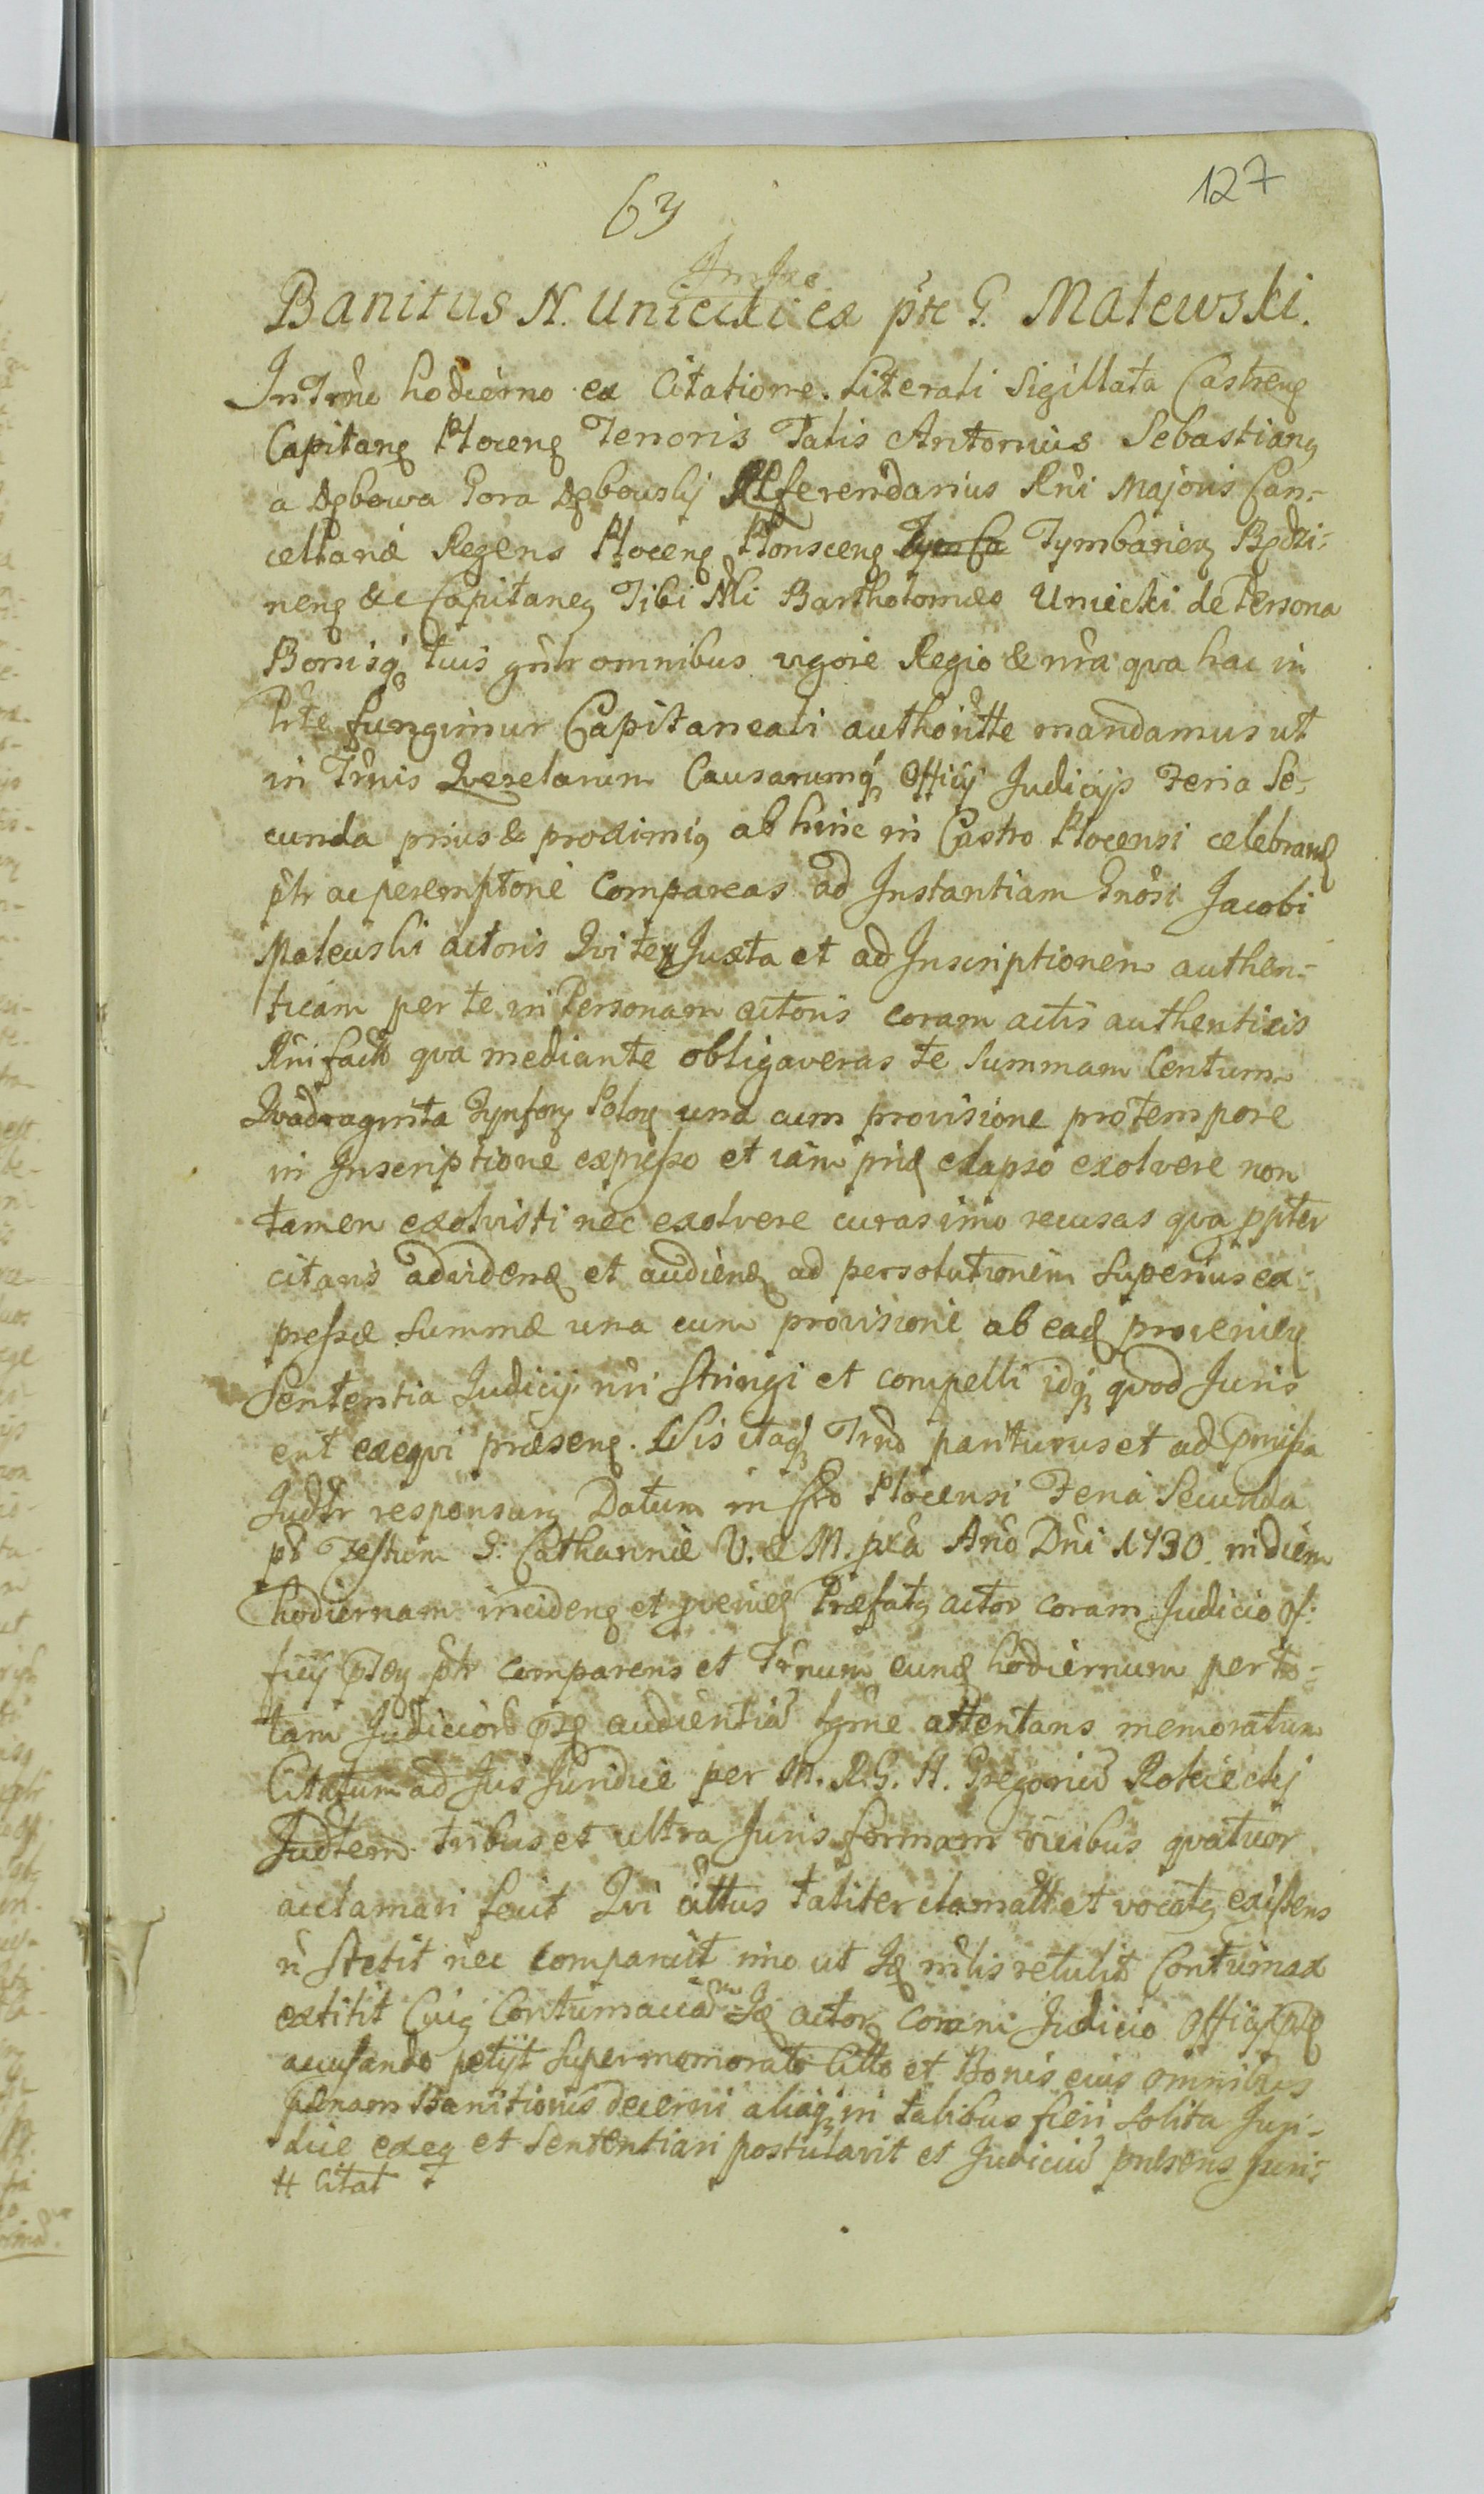 127
63
Banitus N. Uniecki ex pte G. Malewski.
In Trno hodierno ex Citatione Literali Sigillata Castreng
Capitang Ploceng Tenoris Talis Antonius Sebastiang
a Dębowa Gora Dębowskj Referendarius Rni Majoris Can-
cellariæ Regens Ploceng Plonsceng Tymbarieng Będzi-
neng &c Capitaneg Tibi Nli Bartholomæo Uniecki de Persona
Bonisq tuis gnlr omnibus vigore Regio & nra qva hac in
Pte fungimur Capitaneali authoritte mandamus ut
in Trnis Qverelarum Causarumq Officij Judicijs Feria Se-
cunda prius & proximig ab hinc in Castro Plocensi celebrand
ptr ac peremptorie Compareas ad Instantiam Gnosi Jacobi
Malewski actoris Qvi te Juxta et ad Inscriptionem authen-
ticam per te in Personam actoris coram actis authenticis
Rni factt qva mediante obligaveras te Summam Centum
Qvadraginta Tynfong Polog una cum provisione pro tempore
in Inscriptione expresso et iam prid elapso exolvere non
tamen exolvisti nec exolvere curas imo recusas qva ppter
citaris ad vidend et audiend ad persolutionem Superius ex-
pressæ Summæ una cum provisione ab ead provenien
Sententia Judicij nri Stringi et compelli idq qvod Juris
erit exeqvi præseng. Sis itaq Trno pariturus et ad pmissa
Judtr responsurg Datum in Cstro Plocensi Feria Secunda
pt Festum S: Catharinæ V. & M. pxa Ano Dni 1730. in diem
hodiernam incideng et pveniens Præfatg actor coram Judicio Of-
ficij ptr comparens et Trnum eund hodiernum per to-
tam Judiciors audientiã lgme attentans memoratum
Citatum ad Jus Juridice per M. R. G. H. Gregoriũ Rokickj
Judtem tribus et ultra Juris formam vicibus qvatuor
acclamari fecit Qvi cittus taliter clamatt et vocatg existens
ñ Stetit nec comparuit imo ut Id mlis retulit Contumax
extitit Cuig Contumaciã Id actor coram Judicio Officij
accusando petijt Super memorato Citto et Bonis eius omnibus
pænam Banitionis decerni aliaq in talibus fieri Solita Juri-
dice exeq et Sententiari postulavit et Judiciũ præsens Juri-
# Citat